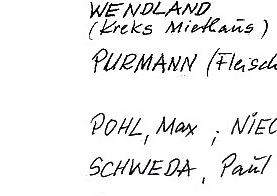 WENDLAND
(Kreks Miethaus)
PURMANN (Fleisch
POHL, Max ; NIEC
SCHWEDA, Paul